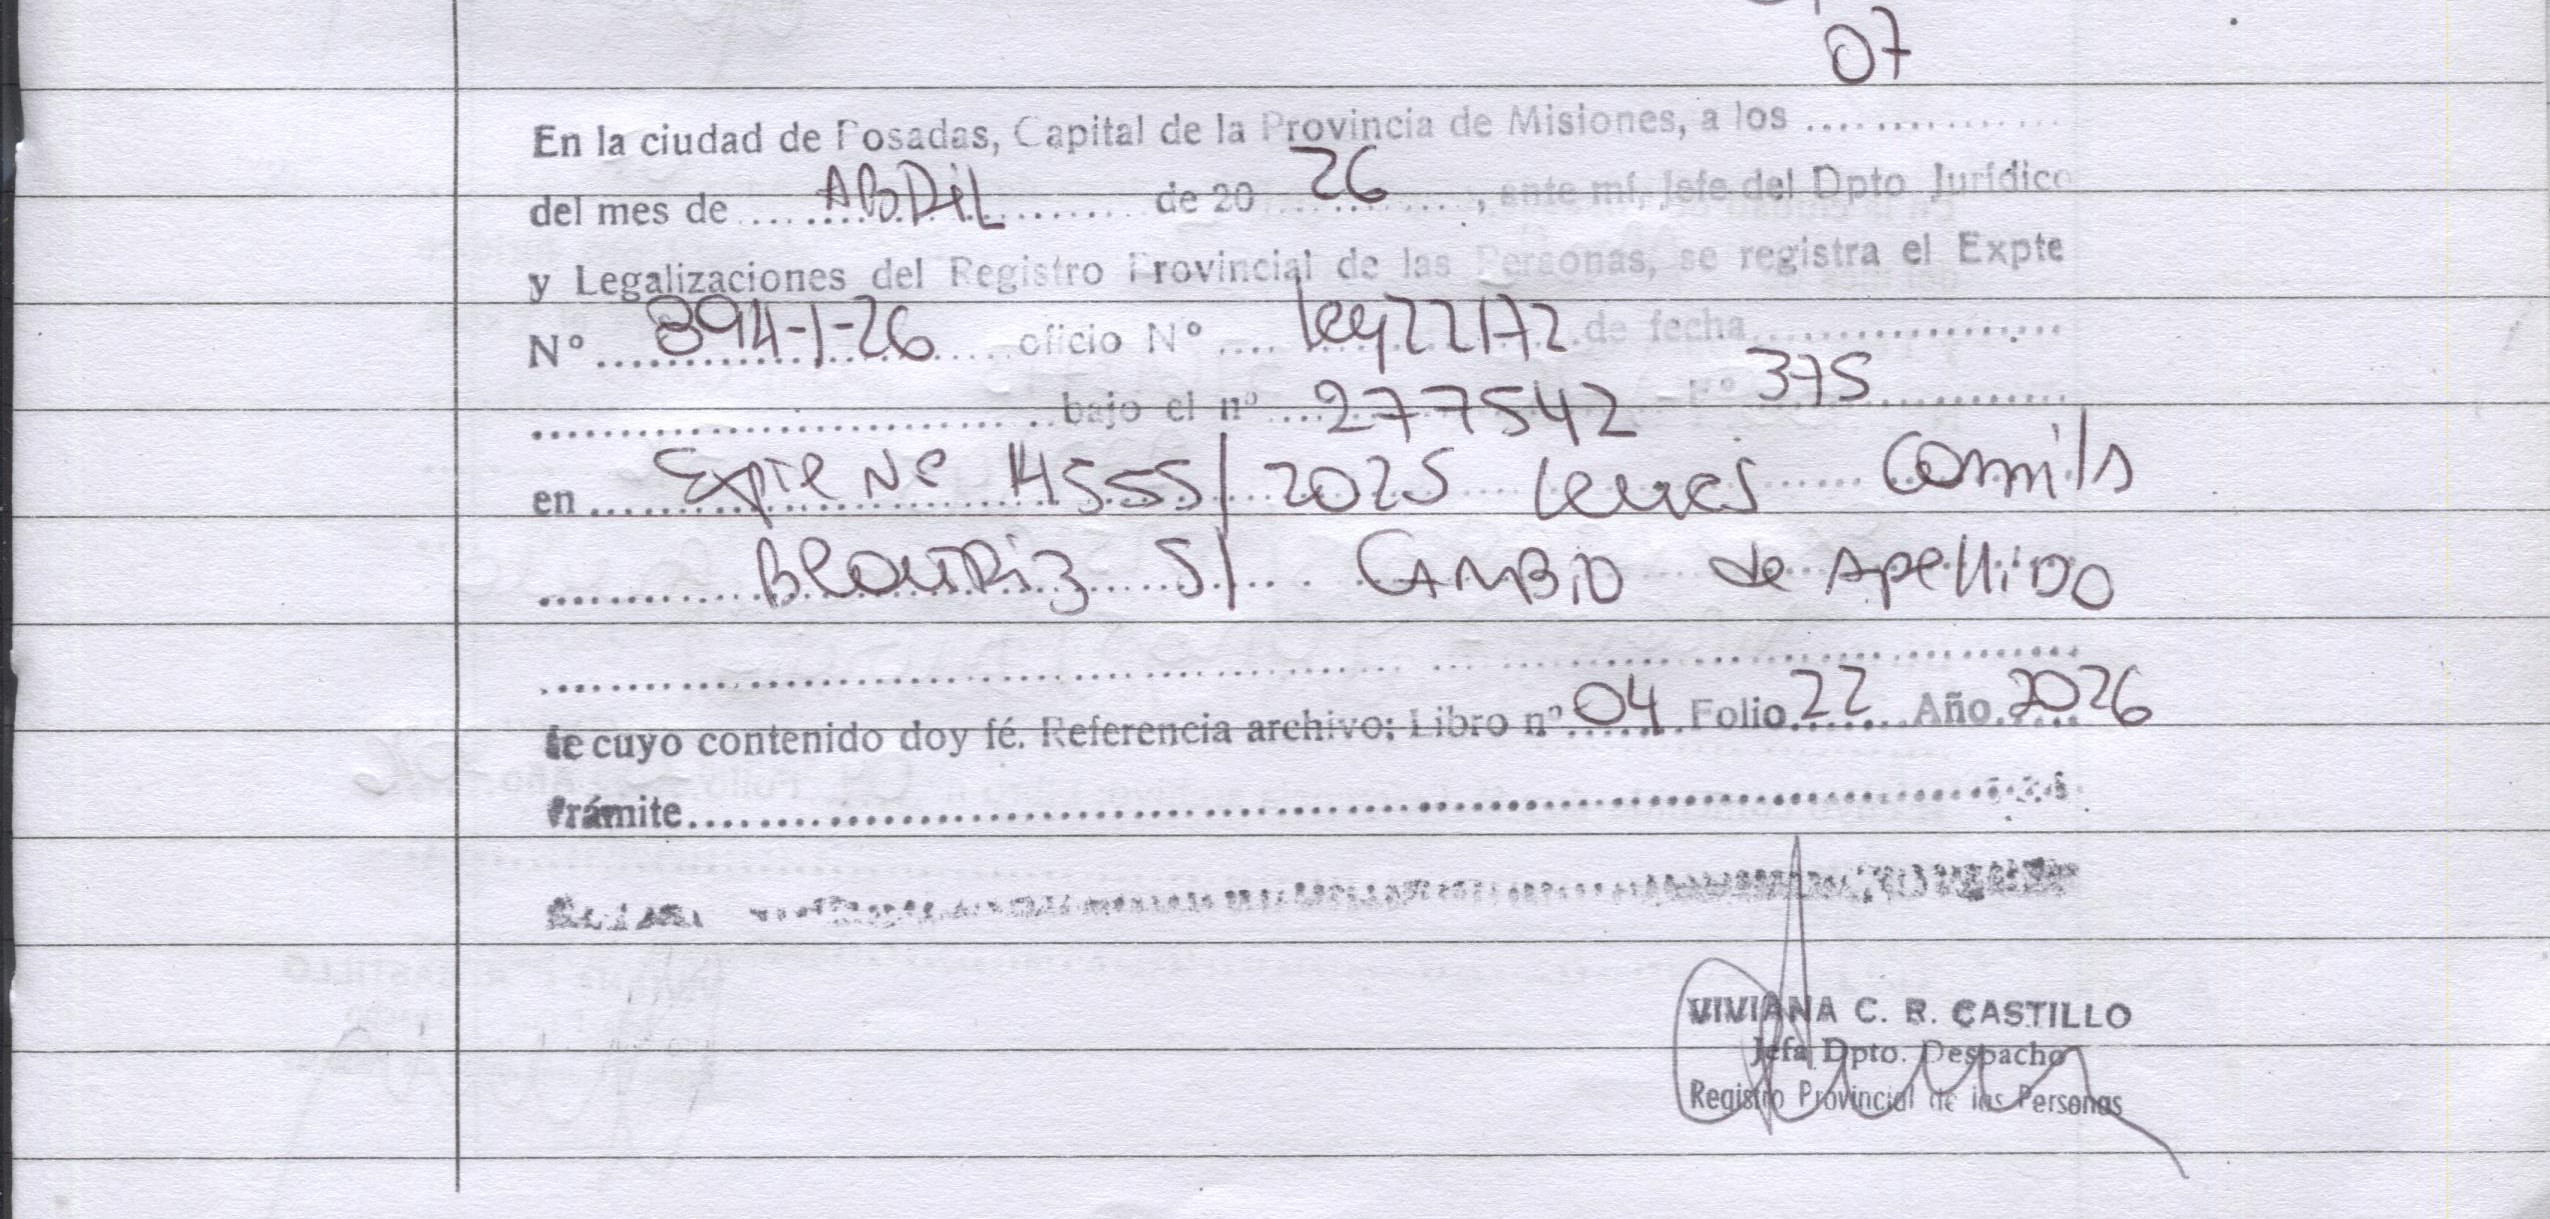 07
En la ciudad de Posadas, Capital de la Provincia de Misiones, a los ..............
del mes de ABRIL de 20 26, ante mi, Jefe del Dpto Jurídico
y Legalizaciones del Registro Provincial de las Personas, se registra el Expte
N° 894-1-26 oficio N° Ley 22172 de fecha
bajo el nº 277542 - Fº 375
en Expte Nº 14555/2025 Camila
Beatriz S/ CAMBIO de Apellido
de cuyo contenido doy fé. Referencia archivo: Libro nº 04 Folio 22 Año 2026
Trámite
VIVIANA C. R. CASTILLO
Jefa Dpto. Despacho
Registro Provincial de las Personas